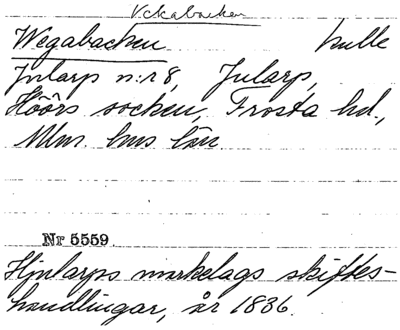 Vckabacken
Wegabacken kulle
Jularp n:r 8, Jularp,
Höörs socken, Frosta hd.,
Mlm. hus län
Nr 5559.
Hjularps markelags skiftes-
handlingar, år 1836.